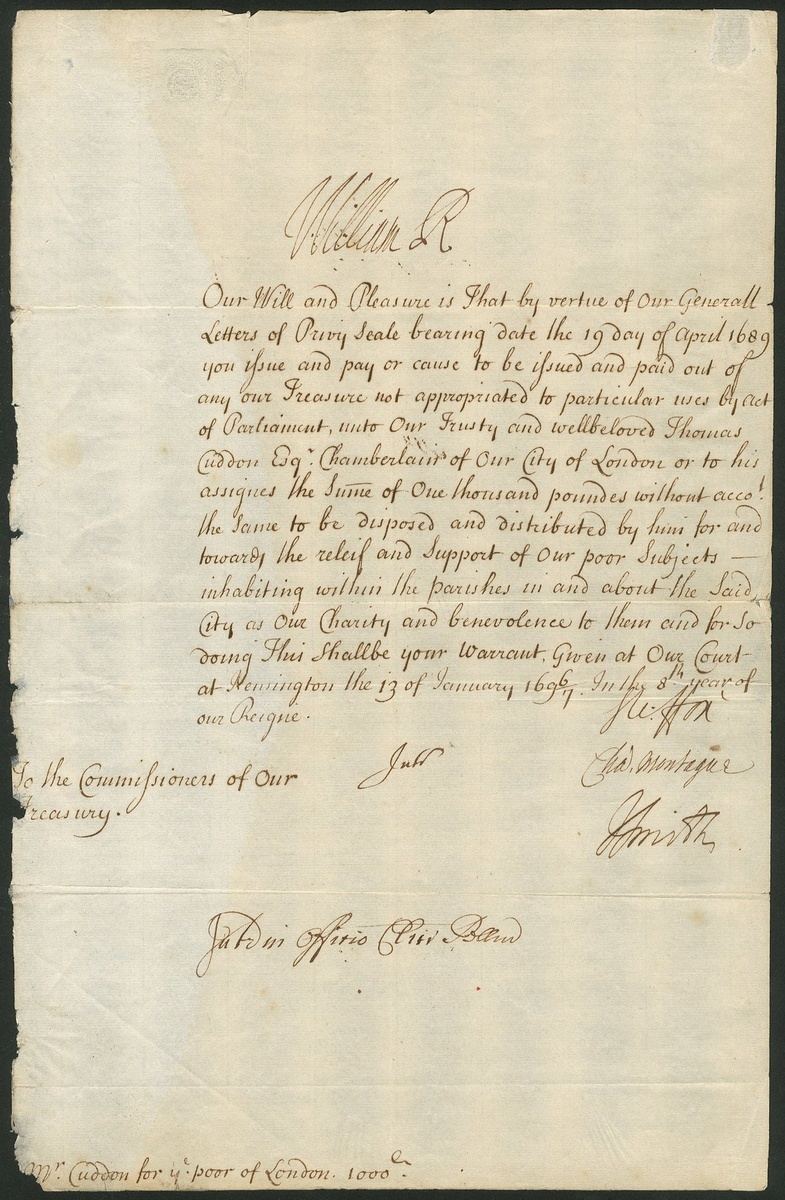 William R
Our Will and Pleasure is That by vertue of Our Generall
Letters of Privy Seale bearing date the 19 day of April 1689
you issue and pay or cause to be issued and paid out of
any our Treasure not appropriated to particular uses by Act
of Parliament, unto Our Trusty and wellbeloved Thomas
Cuddon Esqr. Chamberlain of Our City of London or to his
assignes the Sum̅e of One thousand poundes without accot.
the same to be disposed and distributed by him for and
towards the releif and Support of Our poor Subjects —
inhabiting within the parishes in and about the Said
City as Our Charity and benevolence to them and for So
doing This Shallbe your Warrant. Given at Our Court
at Kensington the 13 of January 1696/7. In the 8th year of
our Reigne.
Ste. Fox
To the Commissioners of Our
Treasury.
Cha. Montague
JSmith
in officio
Mr. Cuddon for ye. poor of London. 1000l.